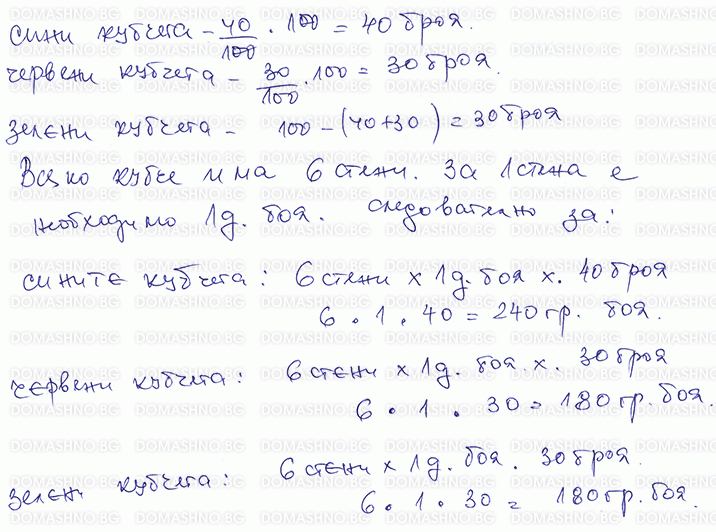 сини кубчета - 40/100 . 100 = 40 броя.
червени кубчета - 30/100 . 100 = 30 броя.
зелени кубчета - 100 - (40+30) = 30 броя
Всяко кубче има 6 стени. За 1 стена е
необходимо 1g. боя. следователно за:
сините кубчета: 6 стени x 1g. боя x. 40 броя
6 . 1 . 40 = 240 гр. боя.
червени кубчета: 6 стени x 1g. боя x. 30 броя
6 . 1 . 30 = 180 гр. боя.
зелени кубчета: 6 стени x 1g. боя. 30 броя.
6 . 1 . 30 = 180 гр. боя.